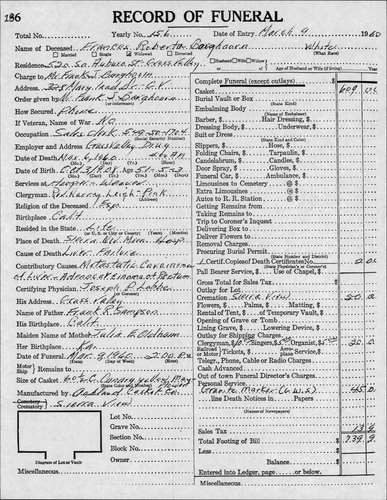 186 RECORD OF FUNERAL
Total No. Yearly No. 156 Date of Entry March 9, 1960
Name of Deceased Frances Roberta Barghoorn White
Married Single Widowed Divorced (What Race)
Residence 520 So. Auburn St. Grass Valley Husband Wife Widow of Age of Husband or Wife (if living) Years
Charge to Mr. Frank
Address Maryland Dr. G.V.
Order given by Mr. Frank
How Secured Phone
If Veteran, Name of War No
Occupation Sales Clerk
(Social Security Number)
Employer and Address Grass Valley Drug
Date of Death Mar. 6, 1960
Date of Birth Oct 3, 1908 Age 51-5-3
Services at Hooper-Weaver
Clergyman Rev. Harry Leigh-Pink
Religion of the Deceased Epis.
Birthplace Calif.
Resided in the State Life
(or U.S. or City or County) (Years) (Months)
Place of Death Sierra Nev. Mem. Hosp
Cause of Death Liver Failure
Contributory Causes Metastatic Carcinoma
of Liver. Adenocarcinoma of Rectum
Certifying Physician Joseph
His Address Grass Valley
Name of Father Frank R. Sampson
His Birthplace Calif.
Maiden Name of Mother Julia E. Oldham
Her Birthplace
Date of Funeral Mar. 9, 1960 2:00 P.M.
Motor Ship Remains to
Size of Casket
Manufactured by Oakland Casket Co.
Cemetery
Crematory Sierra View
Lot No.
Grave No.
Section No.
Block No.
Owner
Diagram of Lot or Vault
Complete Funeral (except outlays) $ 609 00
Casket
Burial Vault or Box
(State Kind)
Embalming Body
(Name of Embalmer)
Barber, $ Hair Dressing, $
Dressing Body, $ Underwear, $
Suit or Dress
(State Kind)
Slippers, $ Hose, $
Folding Chairs, $ Tarpaulin, $
Candelabrum, $ Candles, $
Door Spray, $ Gloves, $
Funeral Car, $ Ambulance, $
Limousines to Cemetery @ $
Extra Limousines @ $
Autos to R. R. Station @ $
Getting Remains from
Taking Remains to
Trip to Coroner's Inquest
Delivering Box to
Deliver Flowers to
Removal Charges
Procuring Burial Permit
(State Number and District)
1 Certif. Copies of Death Certificates No. 2 00
(State Physician's or Coroner's)
Pall Bearer Service, $ Use of Chapel, $
Gross Total for Sales Tax
Outlay for Lot
Cremation Sierra View 50 0
Flowers, $ Palms, $ Matting, $
Rental of Tent, $ of Temporary Vault, $
Opening of Grave or Tomb
Lining Grave, $ Lowering Device, $
Outlay for Shipping Charges
Clergyman, $ Singers, $ Organist, $ 20 0
Railroad or Motor Tickets, $ Aero-plane Service, $
Telegr., Phone, Cable or Radio Charges
Cash Advanced
Out of town Funeral Director's Charges
Personal Service
Granite Marker (G.W.S.) 45 0
line Death Notices in Papers
(Names of Newspapers)
Sales Tax 13 9
Total Footing of Bill $ 739 9
Less
Balance $
Entered into Ledger, page or below.